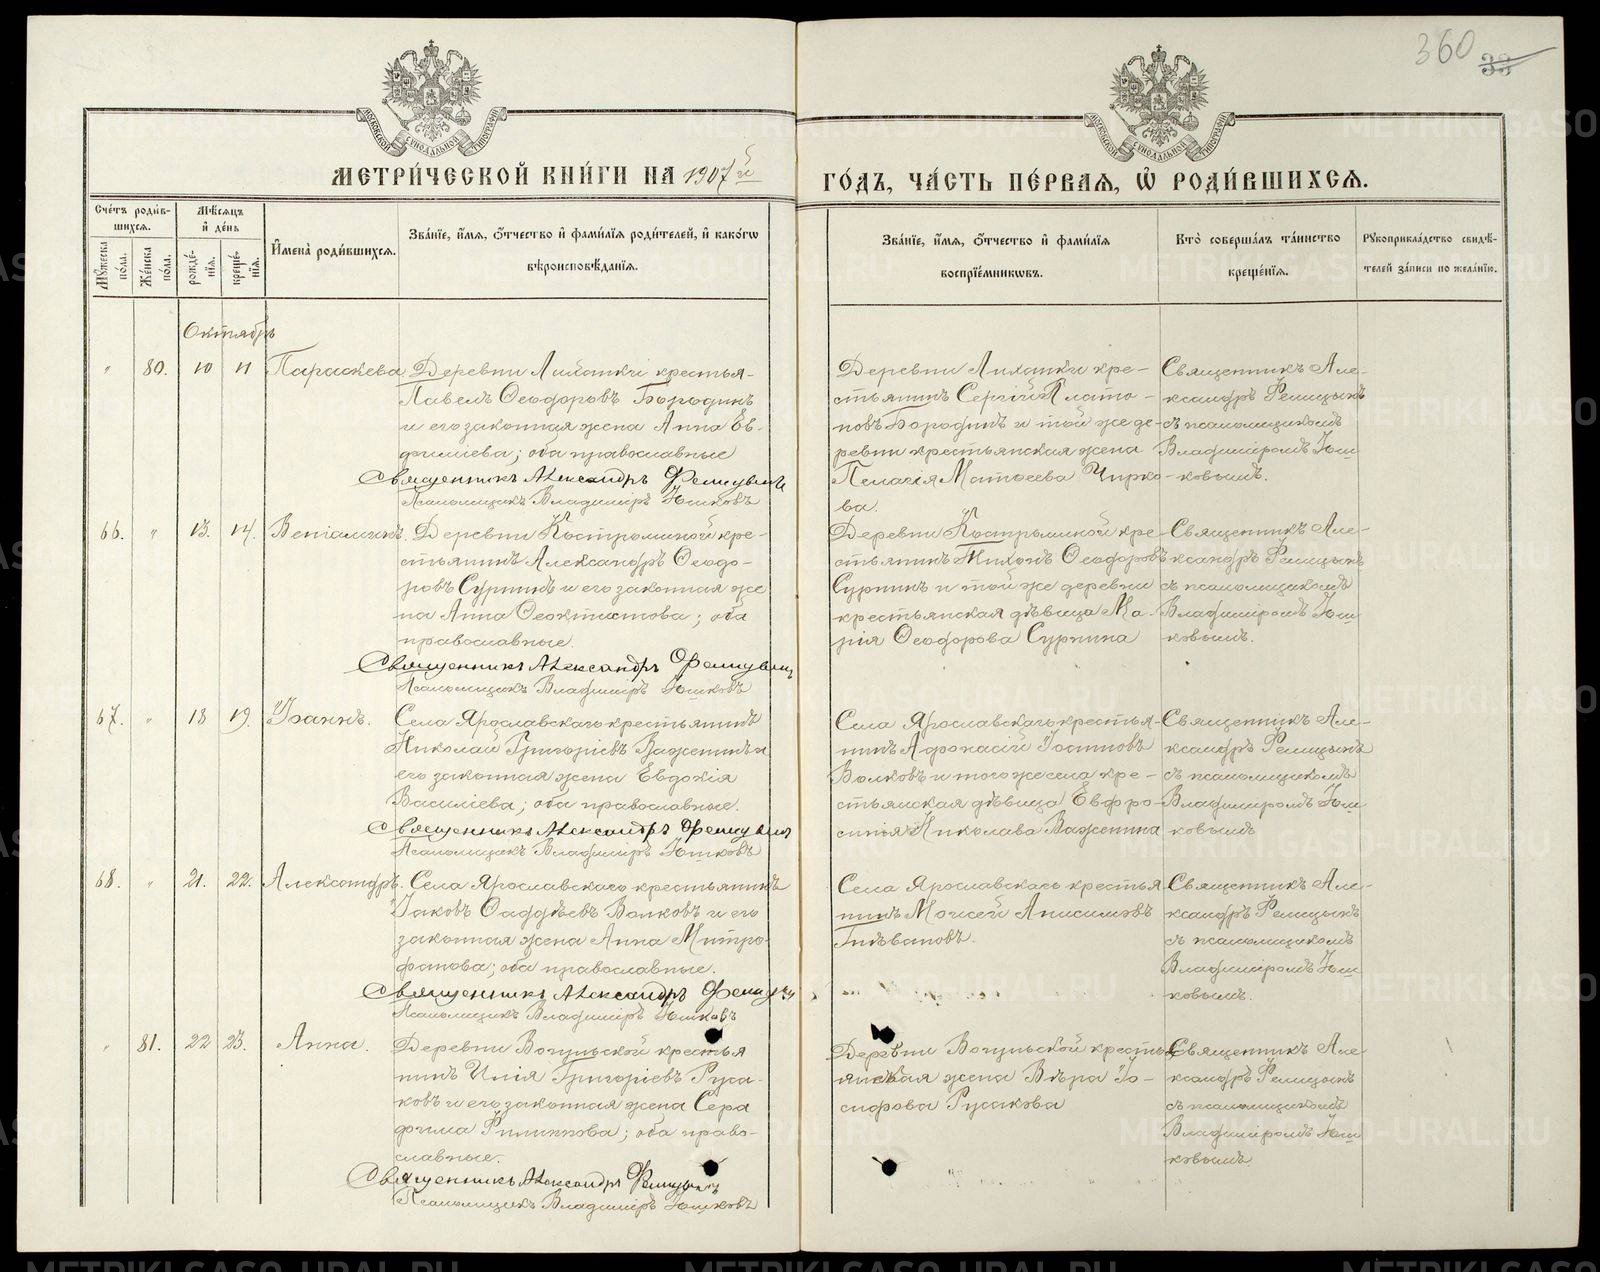 360
33
МОСКОВСКОЙ СѴНОДАЛЬНОЙ ТИПОГРАФIИ
МОСКОВСКОЙ СѴНОДАЛЬНОЙ ТИПОГРАФIИ
МЕТРИ́ЧЕСКОЙ КНИ́ГИ НА 1907й ГО́ДЪ, ЧА́СТЬ ПЕ́РВАЯ, Ѡ҆ РОДИ́ВШИХСЯ.
Сче́тъ роди́вшихся.
Мѣ́сяцъ и҆ де́нь
Мꙋ́жеска по́ла.
Же́нска по́ла.
рожде́нїя.
креще́нїя.
И҆мена̀ роди́вшихся.
Зва́нїе, и҆́мя, ѻ҆́тчество и҆ фами́лїя роди́телей, и҆ како́гѡ
вѣроисповѣ́данїя.
Зва́нїе, и҆́мя, ѻ҆́тчество и҆ фами́лїя
воспрїе́мникѡвъ.
Кто̀ соверша́лъ та́инство
креще́нїя.
Рꙋкоприкла́дство свидѣ́-
телей за́писи по жела́нїю.
Октябрь
" 80. 10 11 Параскева
Деревни Лихотки крестья-
Павелъ Ѳеодоровъ Бородинъ
и его законная жена Анна Ев-
фиміева; оба православные
Священникъ Александръ
Псаломщикъ Владиміръ Юшковъ
Деревни Лихотки кре-
стьянинъ Сергій Плато-
новъ Бородинъ и той же де-
ревни крестьянская жена
Пелагія Матѳеева Чирко-
ва.
Священникъ Але-
ксандръ
съ псаломщикомъ
Владиміромъ Юш-
ковымъ.
66. " 13. 14. Веніаминъ.
Деревни Костроминой кре-
стьянинъ Александръ Ѳеодо-
ровъ Сурнинъ и его законная же
на Анна Ѳеоктистова; оба
православные.
Священникъ Александръ
Псаломщикъ Владиміръ Юшковъ
Деревни Костроминой кре-
стьянинъ Тихонъ Ѳеодоровъ
Сурнинъ и той же деревни
крестьянская дѣвица Ма-
рія Ѳеодорова Сурнина
Священникъ Але-
ксандръ
съ псаломщикомъ
Владиміромъ Юш-
ковымъ.
67. " 18 19. Іоаннъ.
Села Ярославскаго крестьянинъ
Николай Григоріевъ Важенинъ и
его законная жена Евдокія
Василіева; оба православные.
Священникъ Александръ
Псаломщикъ Владиміръ Юшковъ
Села Ярославскаго крестья-
нинъ Афонасій
Волковъ и того же села кре-
стьянская дѣвица Евфро-
синія Николаева Важенина
Священникъ Але-
ксандръ
съ псаломщикомъ
Владиміромъ Юш-
ковымъ
68. " 21. 22. Александръ.
Села Ярославскаго крестьянинъ
Іаковъ Ѳаддѣевъ Волковъ и его
законная жена Анна Митро-
фанова; оба православные.
Священникъ Александръ
Псаломщикъ Владиміръ Юшковъ
Села Ярославскаго крестья
нинъ Моисей Анисимовъ
Гнѣвановъ.
Священникъ Але-
ксандръ
съ псаломщикомъ
Владиміромъ Юш-
ковымъ.
" 81. 22 23. Анна.
Деревни Вогульской крестья
нинъ Илія Григоріевъ Руса-
ковъ и его законная жена Сера
фима Филиппова; оба право-
славные.
Священникъ Александръ
Псаломщикъ Владиміръ Юшковъ
Деревни Вогульской кресть
янская жена Вѣра Іо-
сифова Русакова
Священникъ Але-
ксандръ
съ псаломщикомъ
Владиміромъ Юш
ковымъ
METRIKI.GASO-URAL.RU